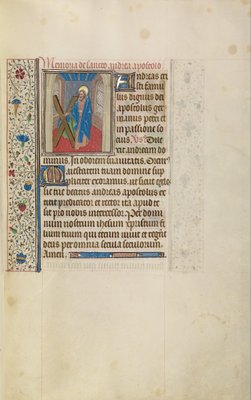 Memoria de sancto andrea apostolo
Andreas cri
sti famu
lus dignus dei
apostolus ger
manus petri et
in passione so
cius Dile
xit andream do
minus. In odorem suauitatis. Oremus
Maiestatem tuam domine sup
pliciter exoramus. ut sicut eccle
sie tue beatus andreas apostolus ex
titit predicator et rector ita apud te
sit pro nobis intercessor. Per domi
num nostrum ihesum xpristum fi
lium tuum qui tecum uiuit et regnat
deus per omnia secula seculorum.
Amen.